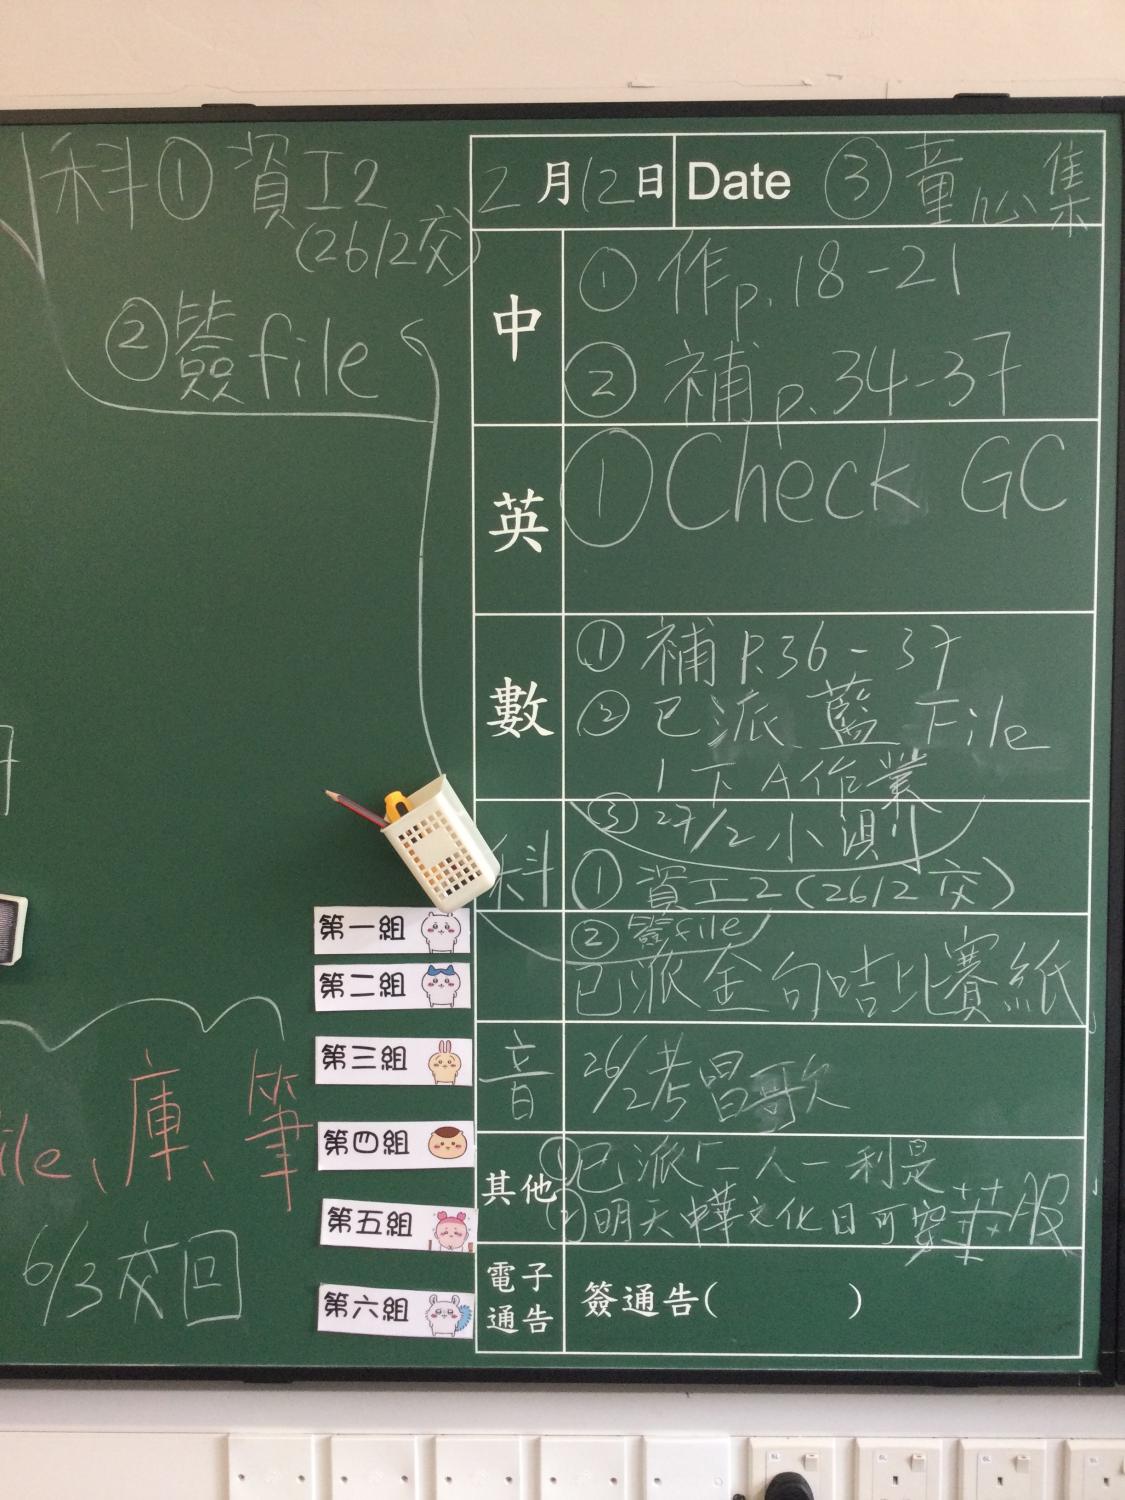 科①資工2
(26/2交)
②簽file
2月12日 Date ③童心集
中
①作p.18-21
②補p.34-37
英
①Check GC
數
①補P.36-37
②已派藍File
1下A作業
③27/2小測
科
①資工2(26/2交)
②簽file
已派金句咭比賽紙
音
26/2考唱歌
其他
①已派「一人一利是
②明天中華文化日可穿華服
電子通告
簽通告( )
第一組
第二組
第三組
第四組
第五組
第六組
ile、庫、筆
6/3交回